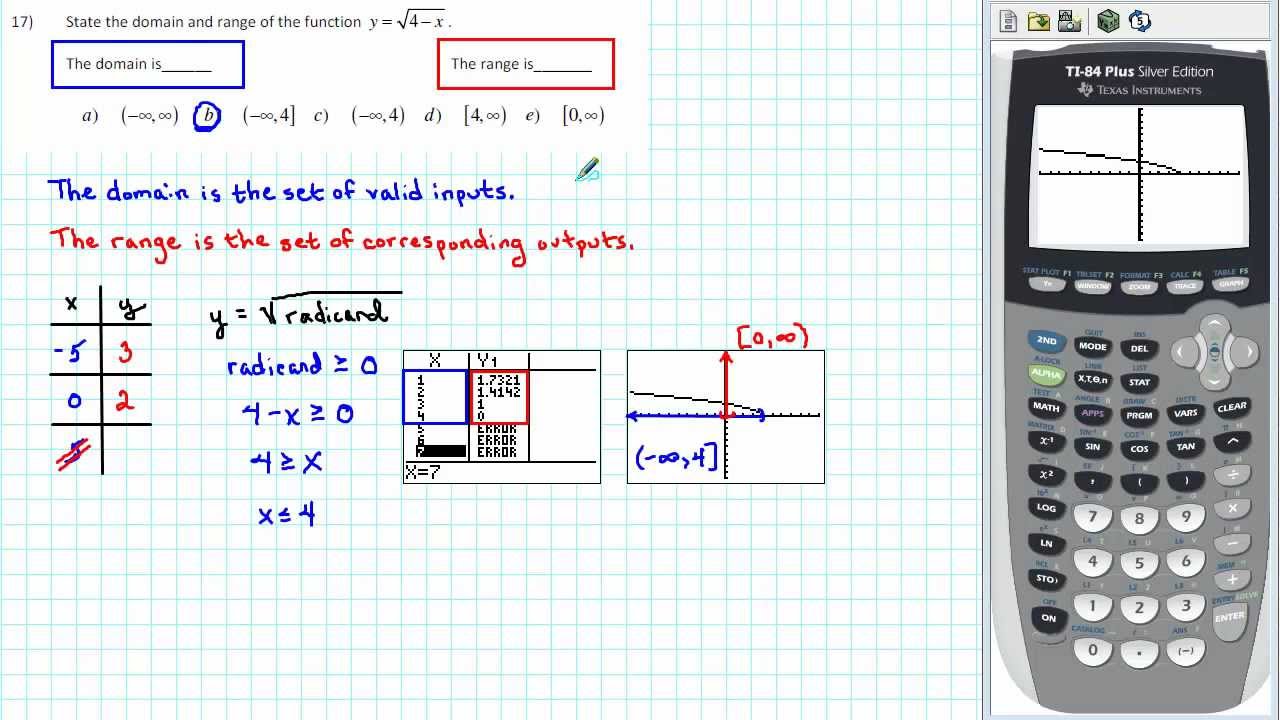 17) State the domain and range of the function y = √4 − x .
The domain is______
The range is_______
a) (−∞, ∞) b (−∞, 4] c) (−∞, 4) d) [4, ∞) e) [0, ∞)
The domain is the set of valid inputs.
The range is the set of corresponding outputs.
x y
-5 3
0 2
y = √radicand
radicand ≥ 0
4 - x ≥ 0
4 ≥ x
x ≤ 4
X Y1
1 1.7321
2 1.4142
3 1
4 0
5 ERROR
6 ERROR
7 ERROR
X=7
[0, ∞)
(-∞, 4]
TI-84 Plus Silver Edition
TEXAS INSTRUMENTS
STAT PLOT F1 TBLSET F2 FORMAT F3 CALC F4 TABLE F5
Y= WINDOW ZOOM TRACE GRAPH
QUIT INS
2ND MODE DEL
A-LOCK LINK LIST
ALPHA X,T,Θ,n STAT
TEST A ANGLE B DRAW C DISTR
MATH APPS PRGM VARS CLEAR
SIN⁻¹ COS⁻¹ TAN⁻¹
x⁻¹ SIN COS TAN ^
x² , ( ) ÷
LOG 7 8 9 ×
LN 4 5 6 −
RCL L1 L2 L3 MEM
STO› 1 2 3 +
CATALOG ANS ENTRY SOLVE
ON 0 . (−) ENTER